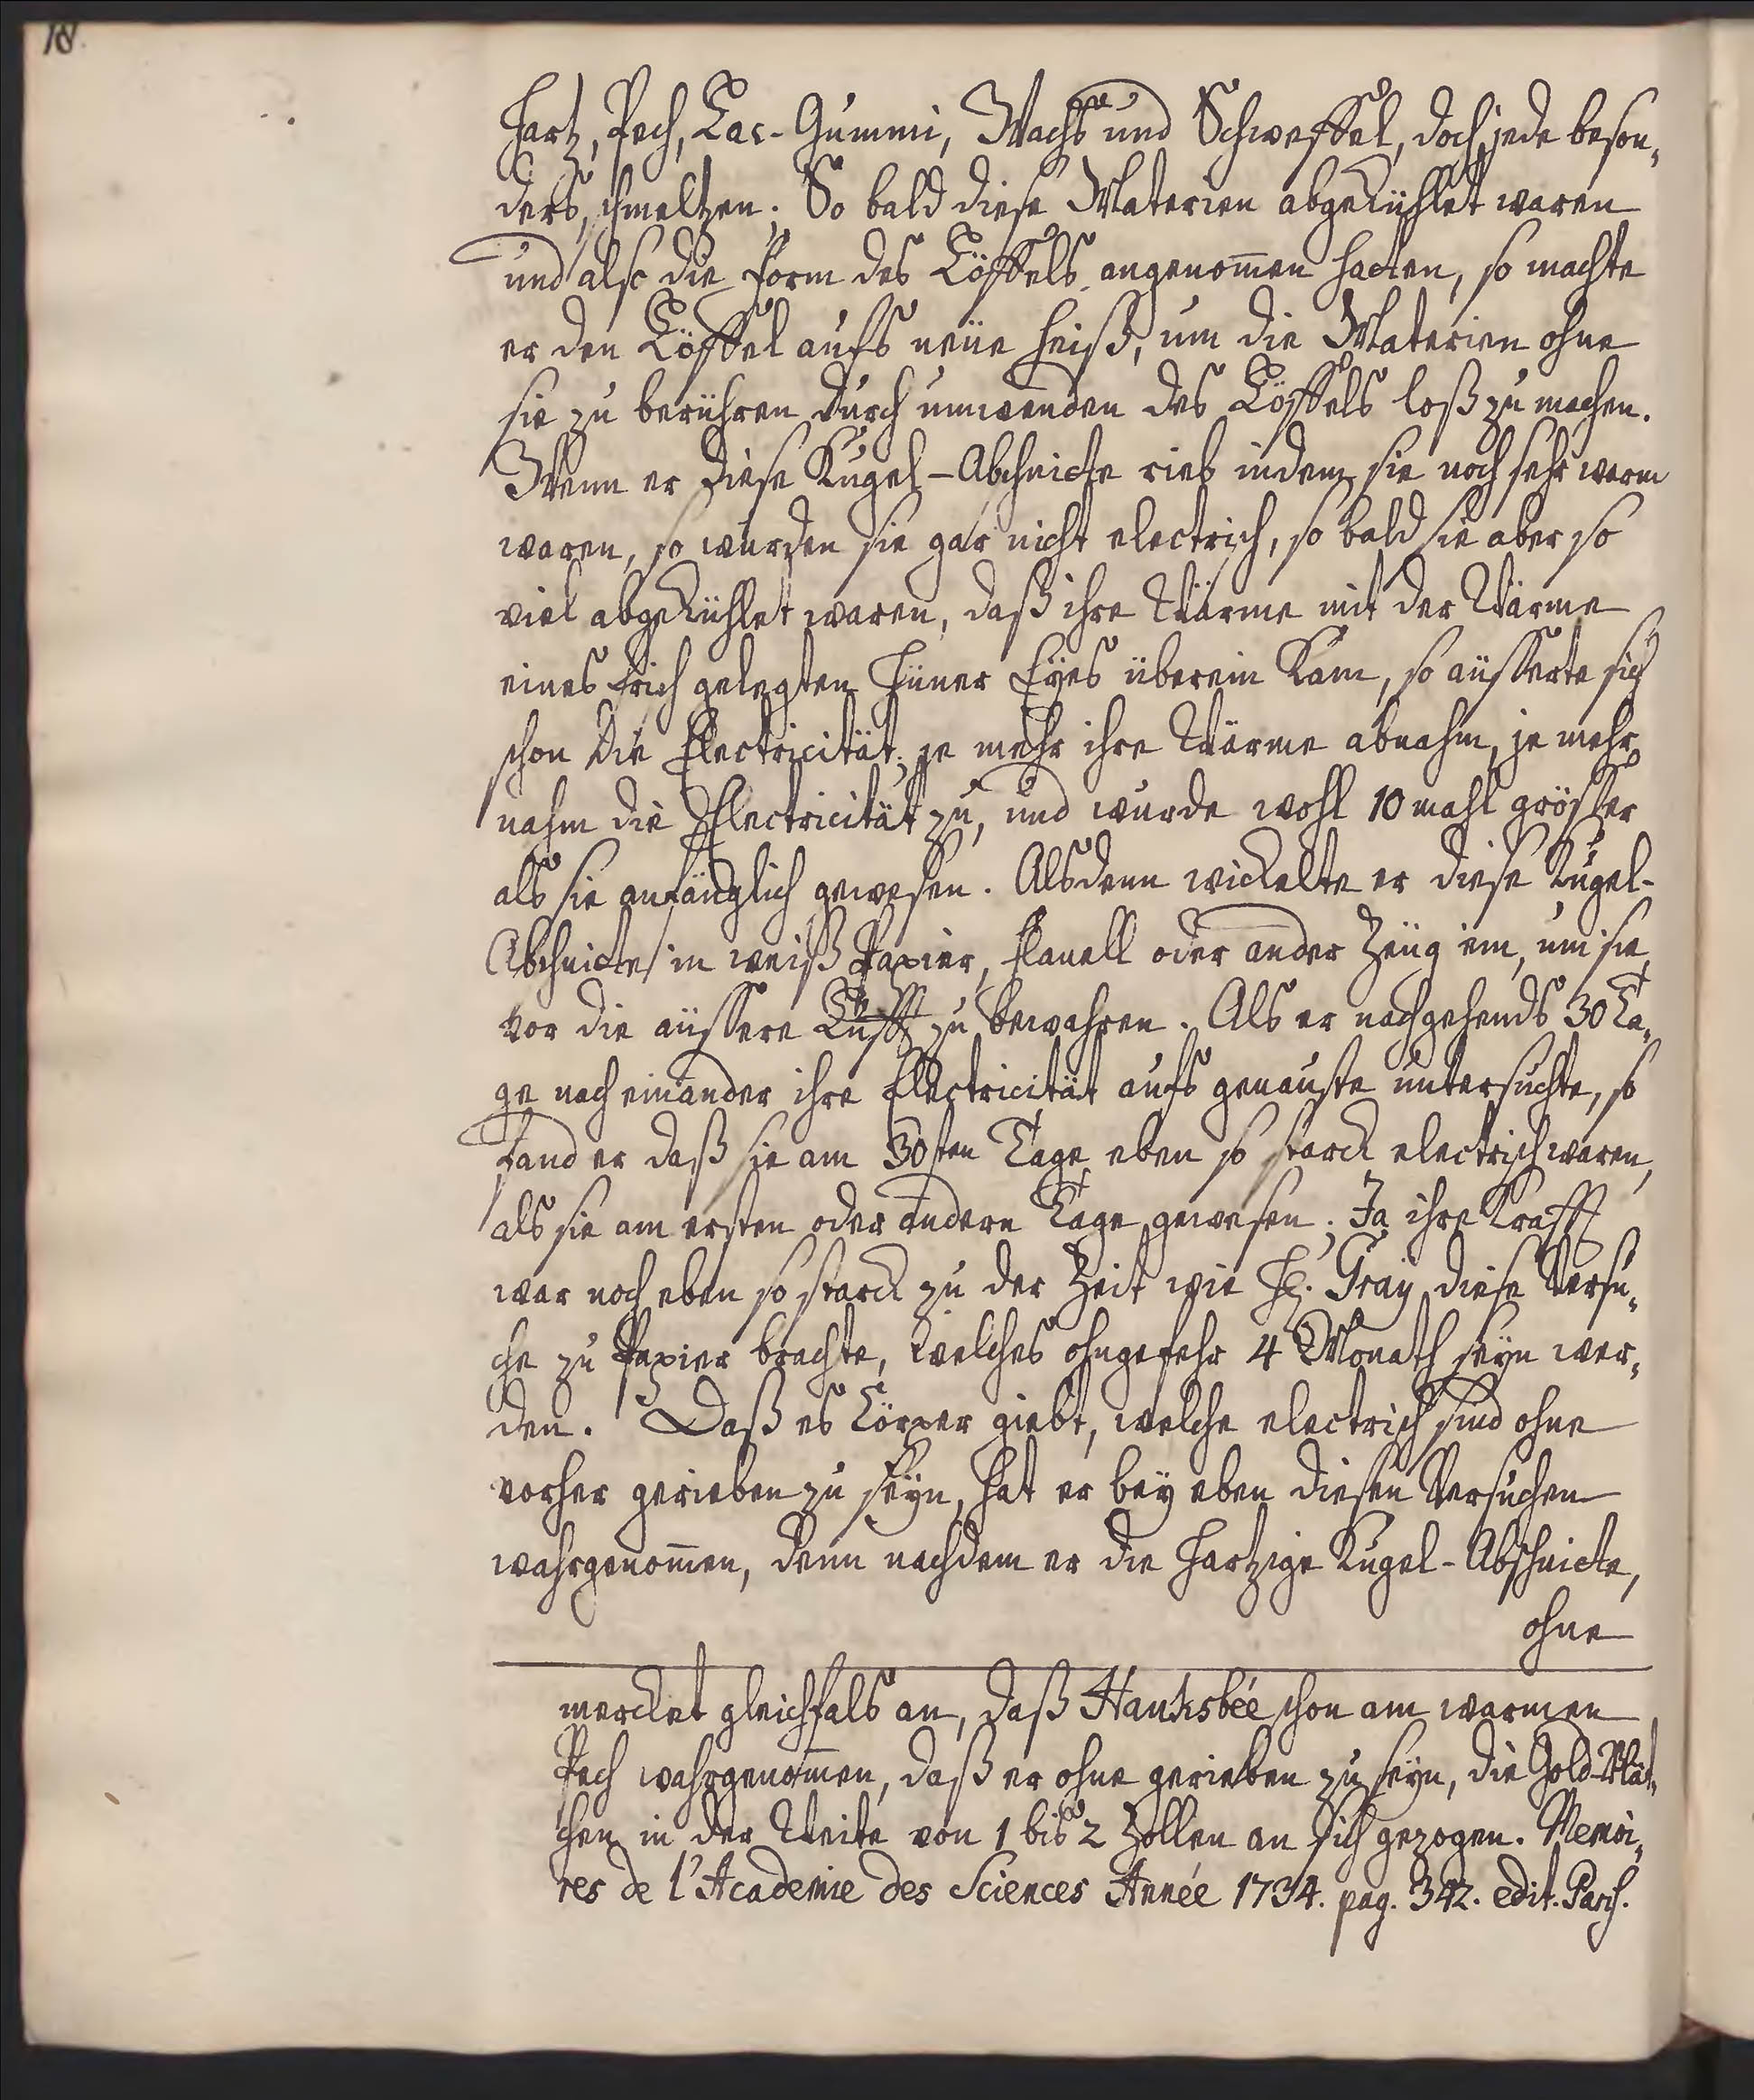 18.
Hartz, Pech, Lac-Gummi, Wachs und Schweffel, doch jede beson„
ders, schmeltzen. So bald diese Materien abgekühlet waren
und also die Form des Löffels angenom̅en hatten, so machte
er den Löffel aufs neüe heiß, um die Materien ohne
sie zu berühren durch umwenden des Löffels loß zu machen.
Wenn er diese Kugel-Abschnitte rieb indem sie noch sehr warm
waren, so wurden sie gar nicht electrisch, so bald sie aber so
viel abgekühlet waren, daß ihre Wärme mit der Wärme
eines frisch gelegten Hüner Eyes überein kam, so äüsserte sich
schon die Electricität, je mehr ihre Wärme abnahm, je mehr
nahm die Electricität zu, und wurde wohl 10 mahl grösser
als sie anfänglich gewesen. Alsdenn wickelte er diese Kugel-
Abschnitte in weiß Papier, Flanell oder ander Zeüg ein, um sie
vor die äüssere Lufft zu bewahren. Als er nachgehends 30 Ta„
ge nach einander ihre Electricität aufs genauste untersuchte, so
fand er daß sie am 30sten Tage eben so starck electrisch waren,
als sie am ersten oder andern Tage gewesen. Ja ihre Krafft
war noch eben so starck zu der Zeit wie H. Gray diese Versu„
che zu Papier brachte, welches ohngefehr 4 Monath seyn wer„
den. Daß es Cörper giebt, welche electrisch sind ohne
vorher gerieben zu seyn, hat er bey eben diesen Versuchen
wahrgenom̅en, denn nachdem er die hartzige Kugel-Abschnitte,
ohne
mercket gleichfals an, daß Hauksbée schon am warmen
Pech wahrgenom̅en, daß er ohne gerieben zu seyn, die Gold-Blät„
chen in der Weite von 1 bis 2 Zollen an sich gezogen. Memoi„
res de l'Academie des Sciences Année 1734. pag. 342. edit. Paris.